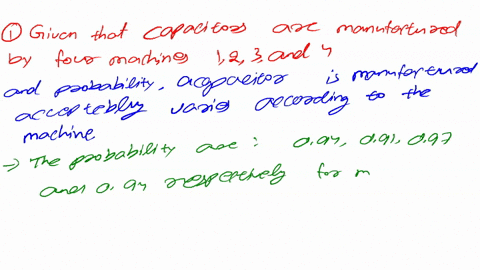 ① Given that capacitors are manufactured
by four machines 1, 2, 3, and 4
and probability, acapacitor is manufactured
acceptebly varies according to the
machine
→ The probability are: 0.94, 0.91, 0.97
and 0.94 respectively for m